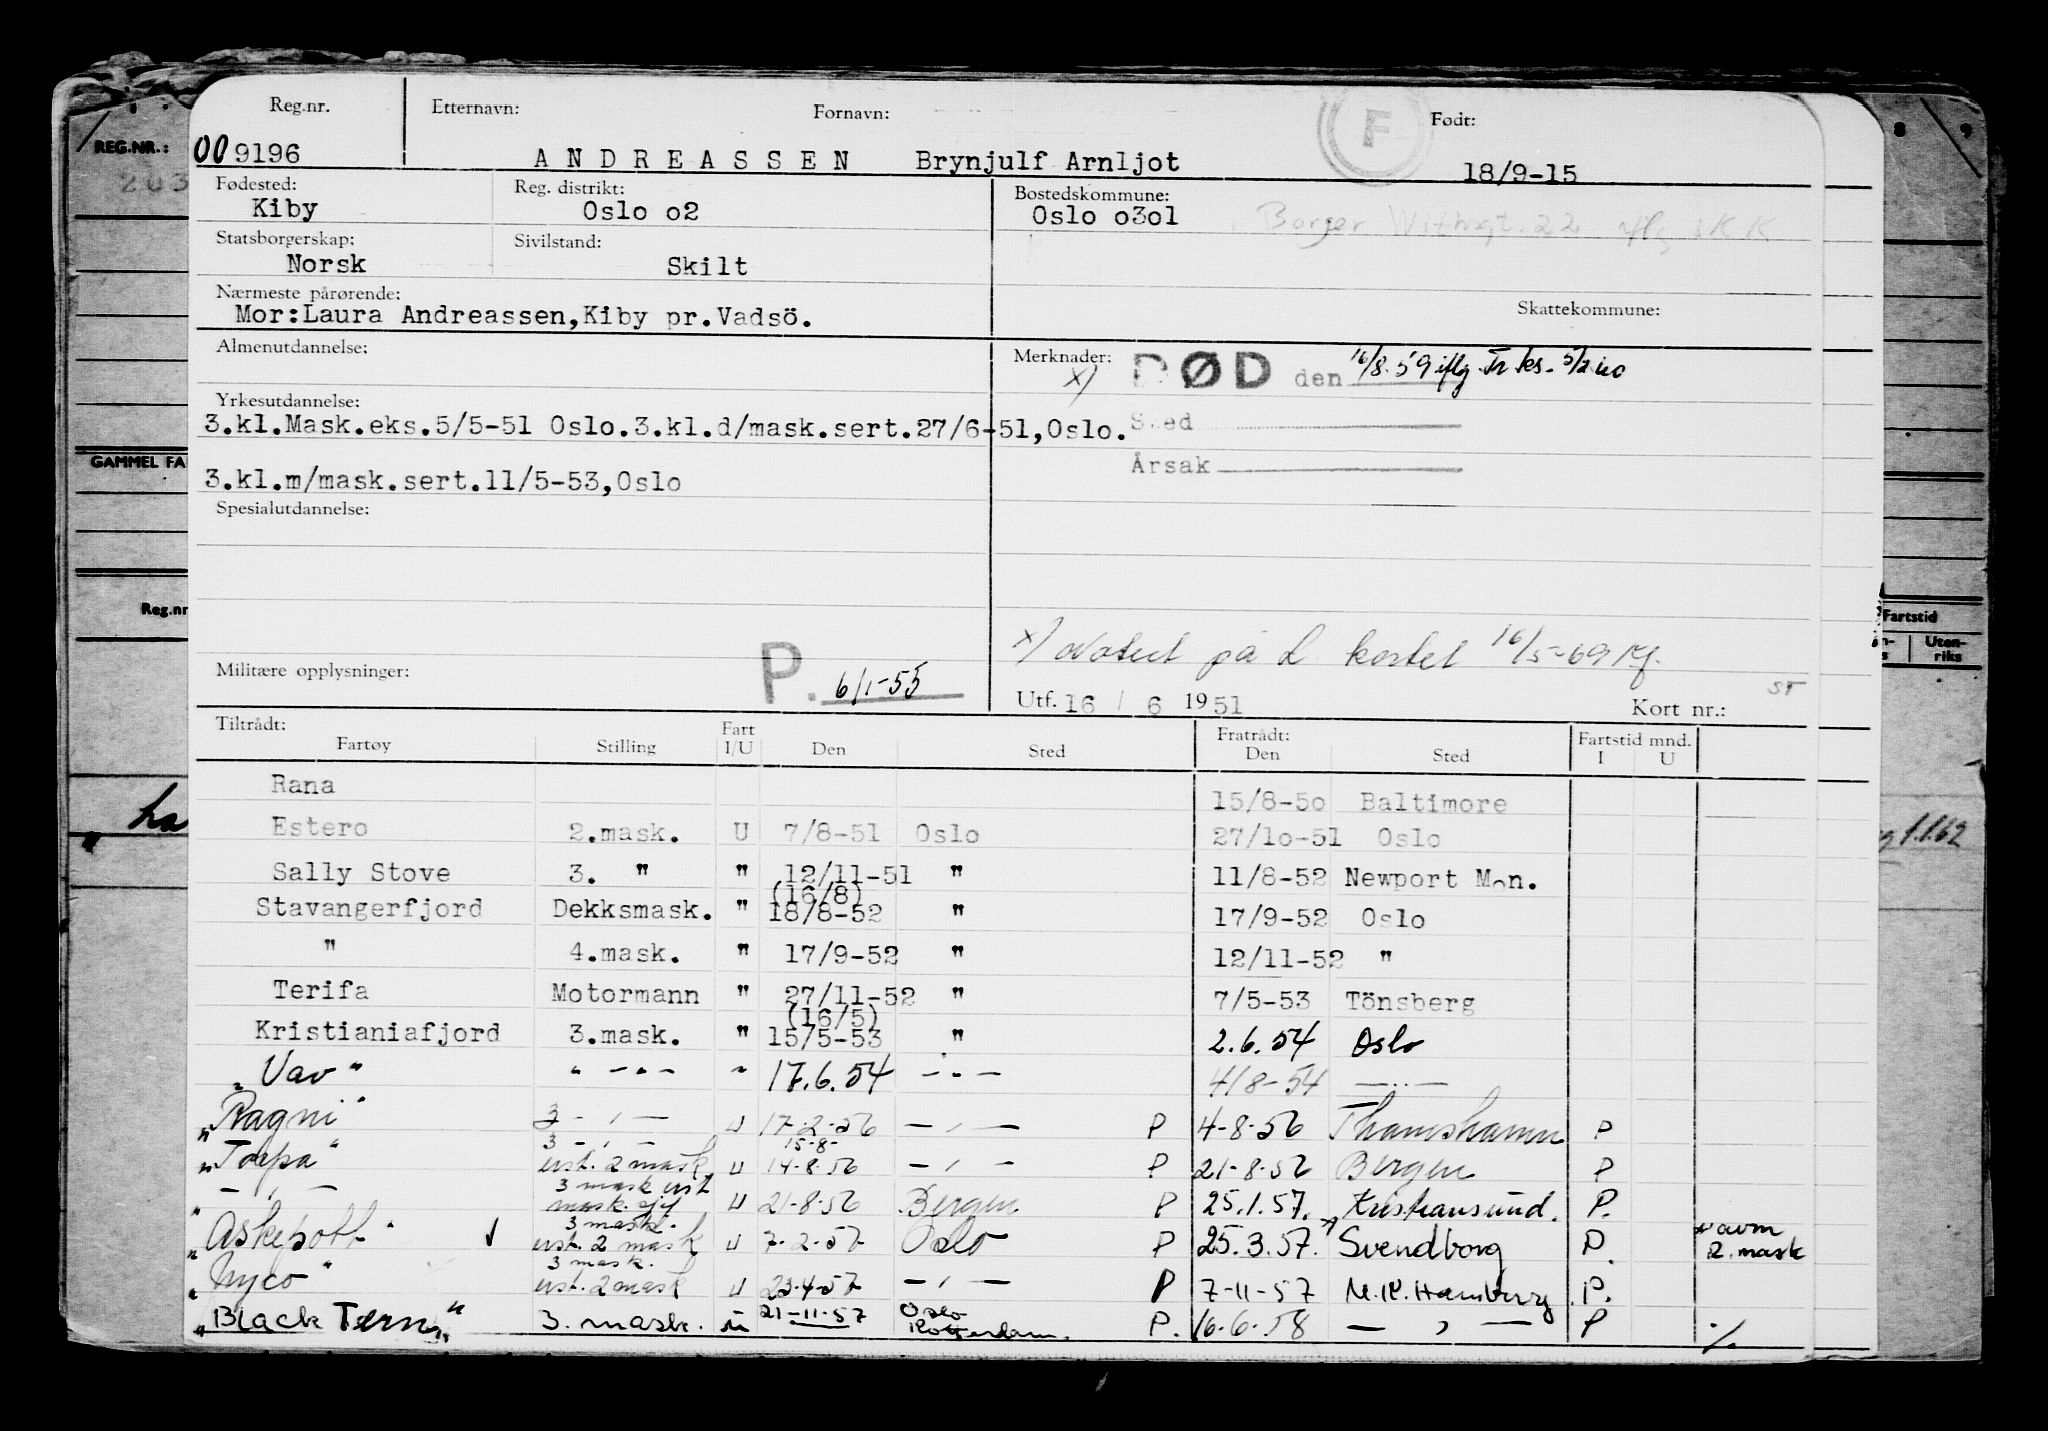 Reg.nr. Etternavn: Fornavn: F Født:
REG.NR.: 009196 ANDREASSEN Brynjulf Arnljot 18/9-15
203
8 9
Fødested: Reg. distrikt: Bostedskommune:
Kiby Oslo o2 Oslo o3ol
Borger
Statsborgerskap: Sivilstand:
Norsk Skilt
Nærmeste pårørende: Skattekommune:
Mor:Laura Andreassen,Kiby pr.Vadsö.
Almenutdannelse: Merknader:
x) DØD den 16/8.59 iflg.
Yrkesutdannelse:
3.kl.Mask.eks.5/5-51 Oslo.3.kl.d/mask.sert.27/6-51,Oslo. Sted
GAMMEL FA
3.kl.m/mask.sert.11/5-53,Oslo Årsak
Spesialutdannelse:
Reg.nr
Fartstid
Uten-
riks
x) Notert på L kortet 16/5-69
Militære opplysninger: P. 6/1-55 Utf. 16 / 6 1951 Kort nr.:
Tiltrådt: Fratrådt: Fartstid mnd.
Fartøy Stilling Fart I/U Den Sted Den Sted I U
Rana 15/8-5o Baltimore
Estero 2.mask. U 7/8-51 Oslo 27/1o-51 Oslo
Sally Stove 3. " " 12/11-51 " 11/8-52 Newport Mon.
(16/8)
Stavangerfjord Dekksmask. " 18/8-52 " 17/9-52 Oslo
" 4.mask. " 17/9-52 " 12/11-52 "
Terifa Motormann " 27/11-52 " 7/5-53 Tönsberg
(16/5)
Kristianiafjord 3.mask. " 15/5-53 " 2.6.54 Oslo
"Vav" " -"- " 17.6.54 -"- 4/8-54 -"-
"Ragni" 3 -"- U 17-2-56 -"- P 4-8-56 Thamshamn P
3 -"- 15-8-
"Torpa" ust. 2 mask U 14-8-56 -"- P 21-8-56 Bergen P
3 mask ust
-"- U 21-8-56 Bergen P 25.1.57. Kristiansund. P.
3 mask.
"Askepott" ust. 2 mask U 7-2-57 Oslo P 25.3.57. x) Svendborg P. x) avm 2. mask
3 mask.
"Nyco" ust. 2 mask U 23-4-57 -"- P 7-11-57 Hamburg P.
"Black Tern" 3. mask. U 21-11-57 Oslo Rotterdam. P. 16-6-58 -"- P ./.